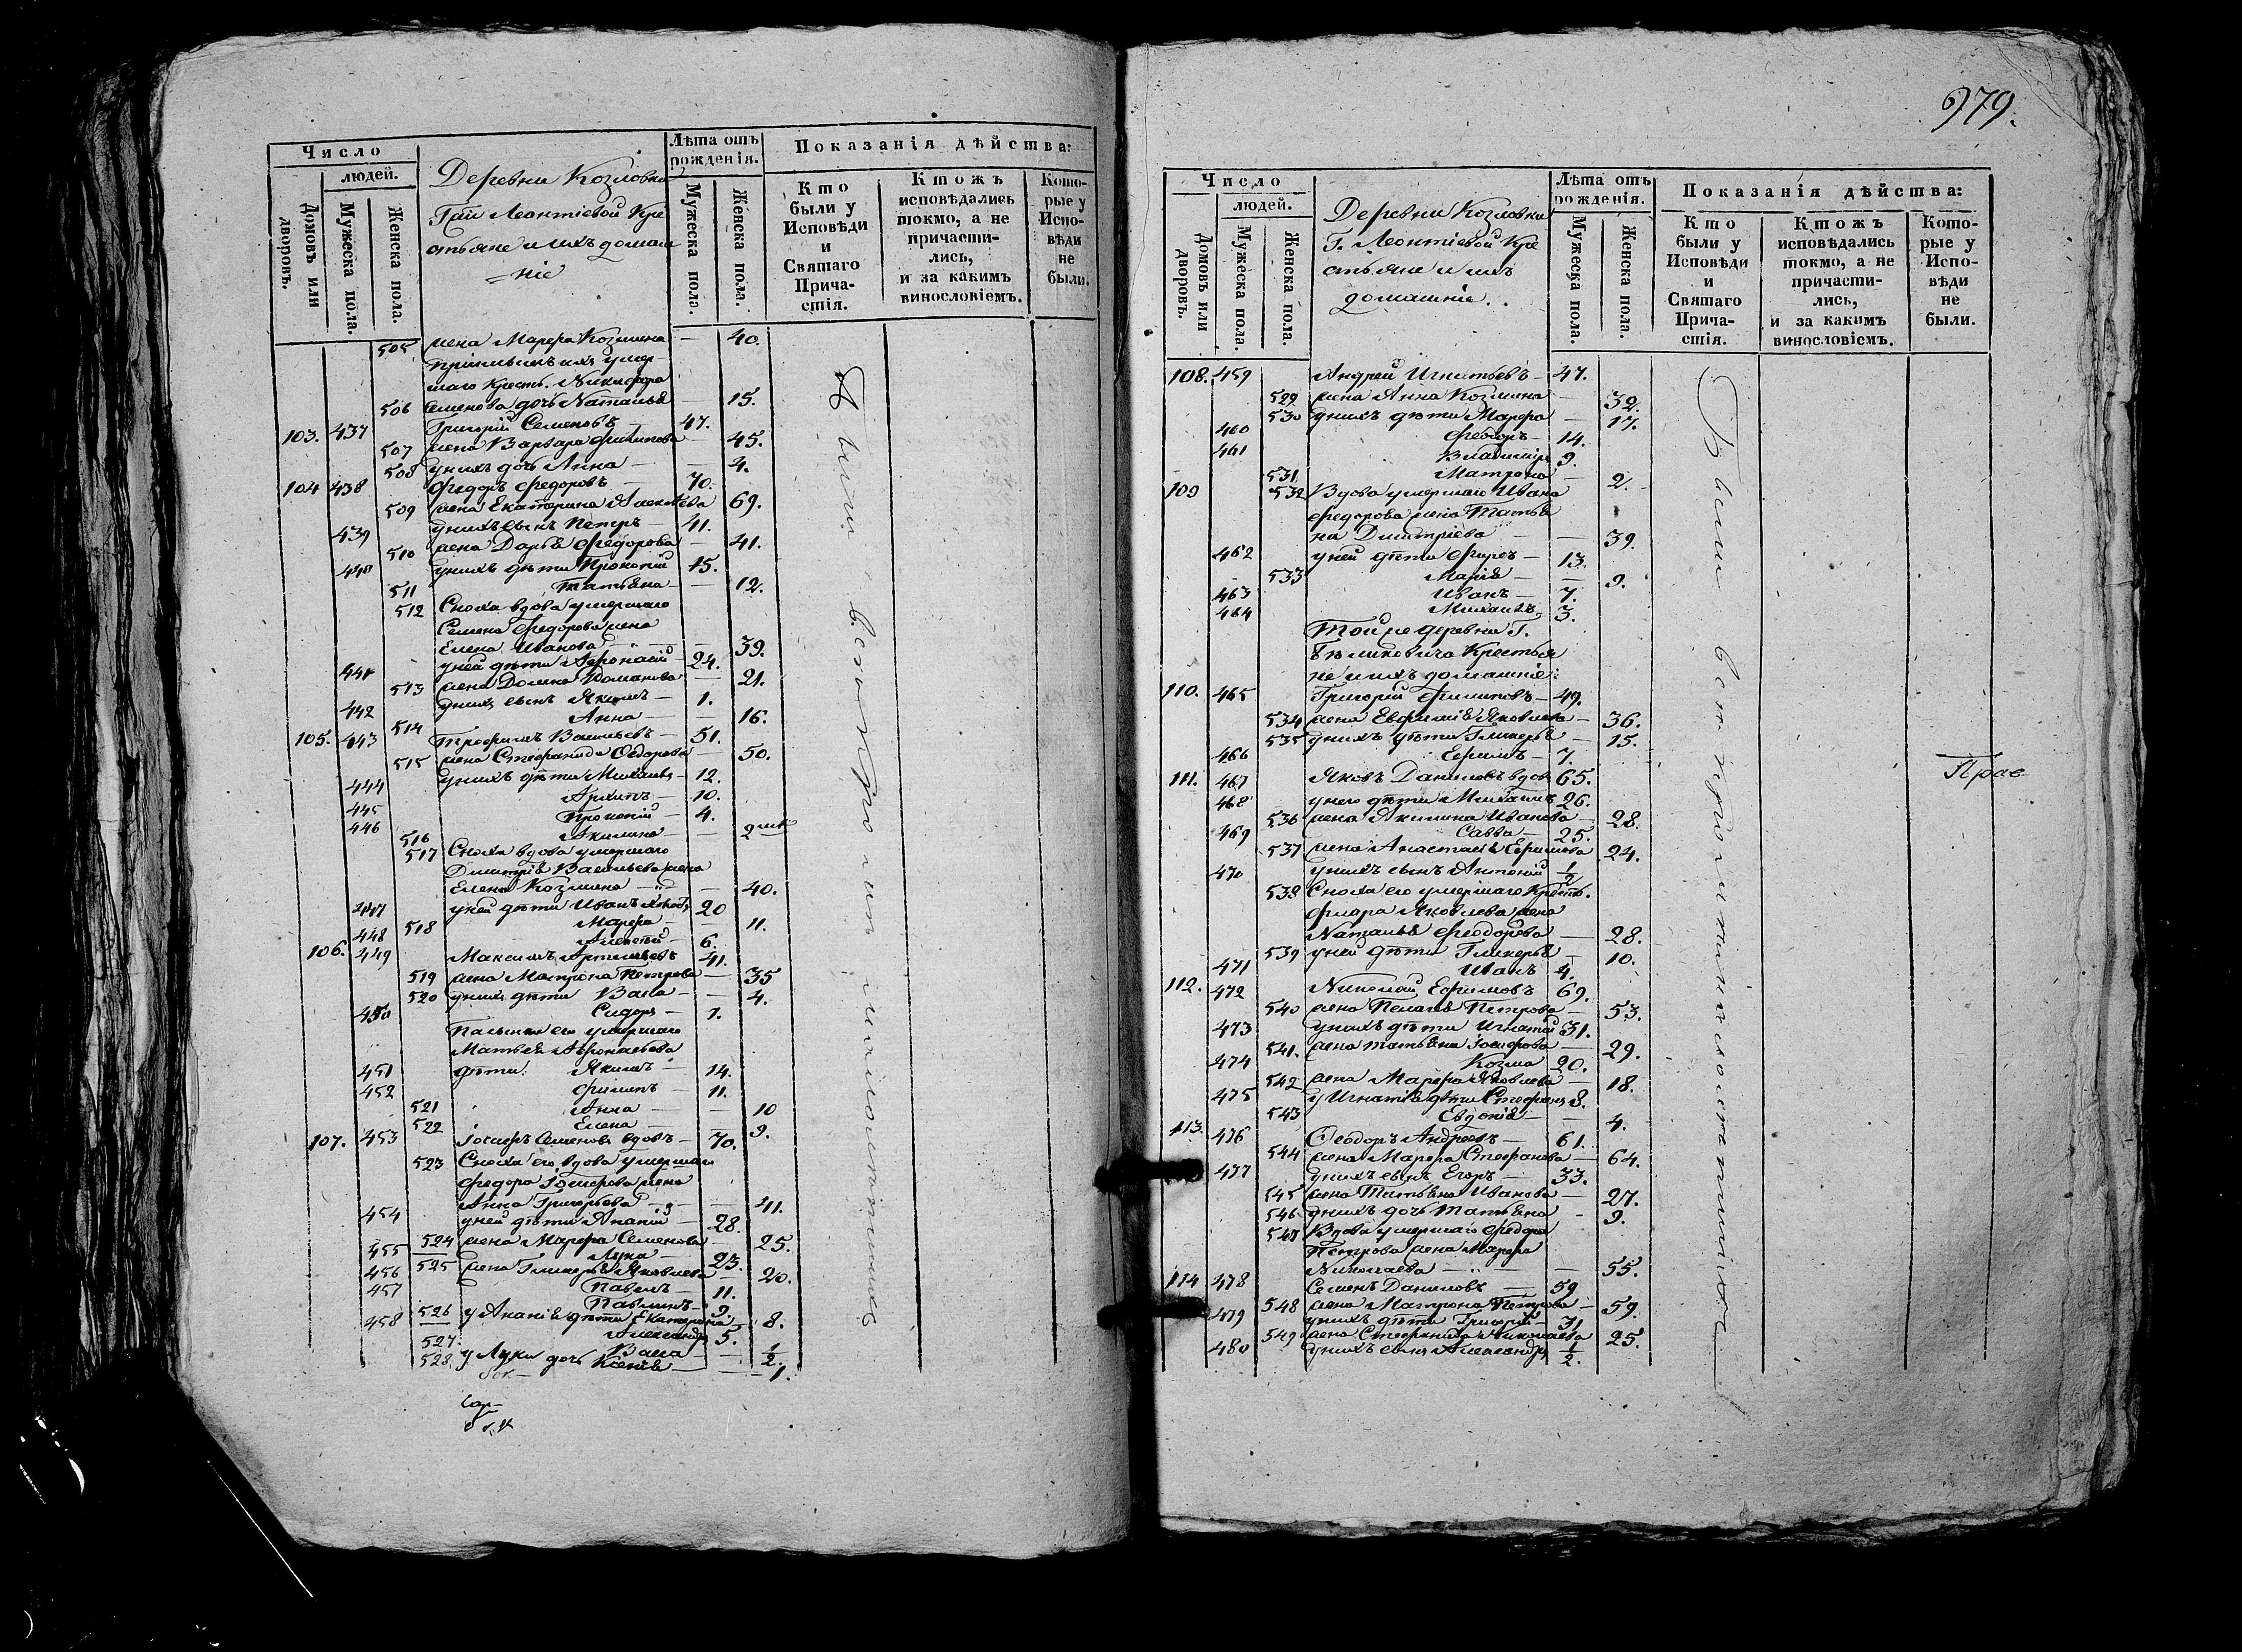 Число
людей.
Домовъ или дворовъ.
Мужеска пола.
Женска пола.
Деревни Козловки
Гжи Леонтіевой Кре
стьяне и ихъ домаш
=ніе
Лѣта отъ рожденія.
Мужеска пола.
Женска пола.
Показанія дѣйства:
Кто были у Исповѣди и Святаго Причастія.
Ктожъ исповѣдались токмо, а не причастились, и за какимъ винословіемъ.
Которые у Исповѣди не были.
505 жена Марфа Козмина — 40.
умер-
шаго крест. Никифора
506 Семенова дочь Наталья — 15.
103. 437 Григорій Семеновъ — 47.
507 жена Варвара Филипова — 45.
508 у нихъ дочь Анна — 4.
104 438 Федоръ Федоровъ — 70.
509 жена Екатерина 69.
439 у нихъ сынъ Петръ — 41.
510 жена Дарья Федорова — 41.
440 у нихъ дѣти Прокопій 15.
511 Татьяна — 12.
512 Сноха вдова умершаго
Семена Федорова жена
Елена Иванова — 39.
441 у ней дѣти Афонасій — 24.
513 жена Домна Романова — 21.
442 у нихъ сынъ Якимъ — 1.
514 Анна — 16.
105. 443 Трофимъ Васильевъ — 51.
515 жена Стефанида Федорова 50.
444 у нихъ дѣти Михаилъ — 12.
445 Архипъ — 10.
446 Прокопій — 4.
516 Акилина — 2
517 Сноха вдова умершаго
Дмитрія Васильева жена
Елена Козмина — 40.
447 у ней дѣти Иванъ 20
518 Марфа — 11.
448 Алексѣй — 6.
106. 449 Максимъ Артемьевъ 41.
519 жена Матрона Петрова — 35
520 у нихъ дѣти Васса — 4.
450 Сидоръ — 1.
Пасынки его умершаго
Матвѣя Афонасьева
451 дѣти: Якимъ — 14.
452 Филипъ — 11.
521 Анна — 10
522 Елена — 9.
107. 453 Іосифъ Семеновъ вдовъ — 70.
523 Сноха его вдова умершаго
Федора Іосифова жена
Анна Григорьева — 41.
454 у ней дѣти Ананій — 28.
524 жена Марфа Семенова — 25.
455 Лука — 23.
525 жена Гликерья Яковлева — 20.
456 Павелъ — 11.
457 Павлинъ — 9.
526 у Ананія дѣти Екатерина 8.
458 Александръ 5.
527. Васса — 1/2.
528. у Луки дочь Ксенья — 1.
Были во и
979.
Число
людей.
Домовъ или дворовъ.
Мужеска пола.
Женска пола.
Деревни Козловки
Г. Леонтіевой Кре
стьяне и ихъ
домашніе.
Лѣта отъ рожденія.
Мужеска пола.
Женска пола.
Показанія дѣйства:
Кто были у Исповѣди и Святаго Причастія.
Ктожъ исповѣдались токмо, а не причастились, и за какимъ винословіемъ.
Которые у Исповѣди не были.
108. 459 Андрей Игнатьевъ — 47.
529 жена Анна Козмина — 32.
530 у нихъ дѣти Марфа — 17.
460 Федоръ — 14.
461 Владиміръ 9.
531 Матрона — 2.
109 532 Вдова умершаго Ивана
Федорова жена Татья
на Дмитріева — 39.
462 у ней дѣти — 13.
533 Марія — 9.
463 Иванъ — 7.
464 Михаилъ 3.
Той же деревни Г.
Крестья
не и ихъ домашніе:
110. 465 Григорій Филиповъ — 49.
534 жена Евфимія Яковлева — 36.
535 у нихъ дѣти Гликерья — 15.
466 Ефимъ — 7.
111. 467 Яковъ Даниловъ вдов 65.
468 у него дѣти Михаилъ 26.
536 жена Акилина Иванова — 28.
469 Савва — 25.
537 жена Анастасія Ефимова 24.
470 у нихъ сынъ Антоній 1/2
538 Сноха его умершаго Крест.
Флора Яковлева жена
Наталья Феодорова — 28.
539 у ней дѣти Гликерья — 10.
471 Иванъ 4.
112. 472 Николай Ефимовъ 69.
540 жена Пелагея Петрова — 53.
473 у нихъ дѣти Игнатій 31.
541. жена Татьяна Іосифова — 29.
474 Козма 20.
542 жена Марфа Яковлева — 18.
475 у Игнатія дѣти Стефанъ 8.
543 Евдокія — 4.
113. 476 Феодоръ Андреевъ — 61.
544 жена Марфа Стефанова — 64.
477 у нихъ сынъ Егоръ — 33.
545 жена Татьяна Иванова — 27.
546 у нихъ дочь Татьяна — 9.
547 Вдова умершаго Федора
Петрова жена Марфа
Николаева — 55.
114 478 Семенъ Даниловъ 59
548 жена Матрона Петрова — 59.
479 у нихъ дѣти Григорій — 31
549 жена Стефанида Николаева 25.
480 у нихъ сынъ Александръ 1/2.
Были во и
Прав